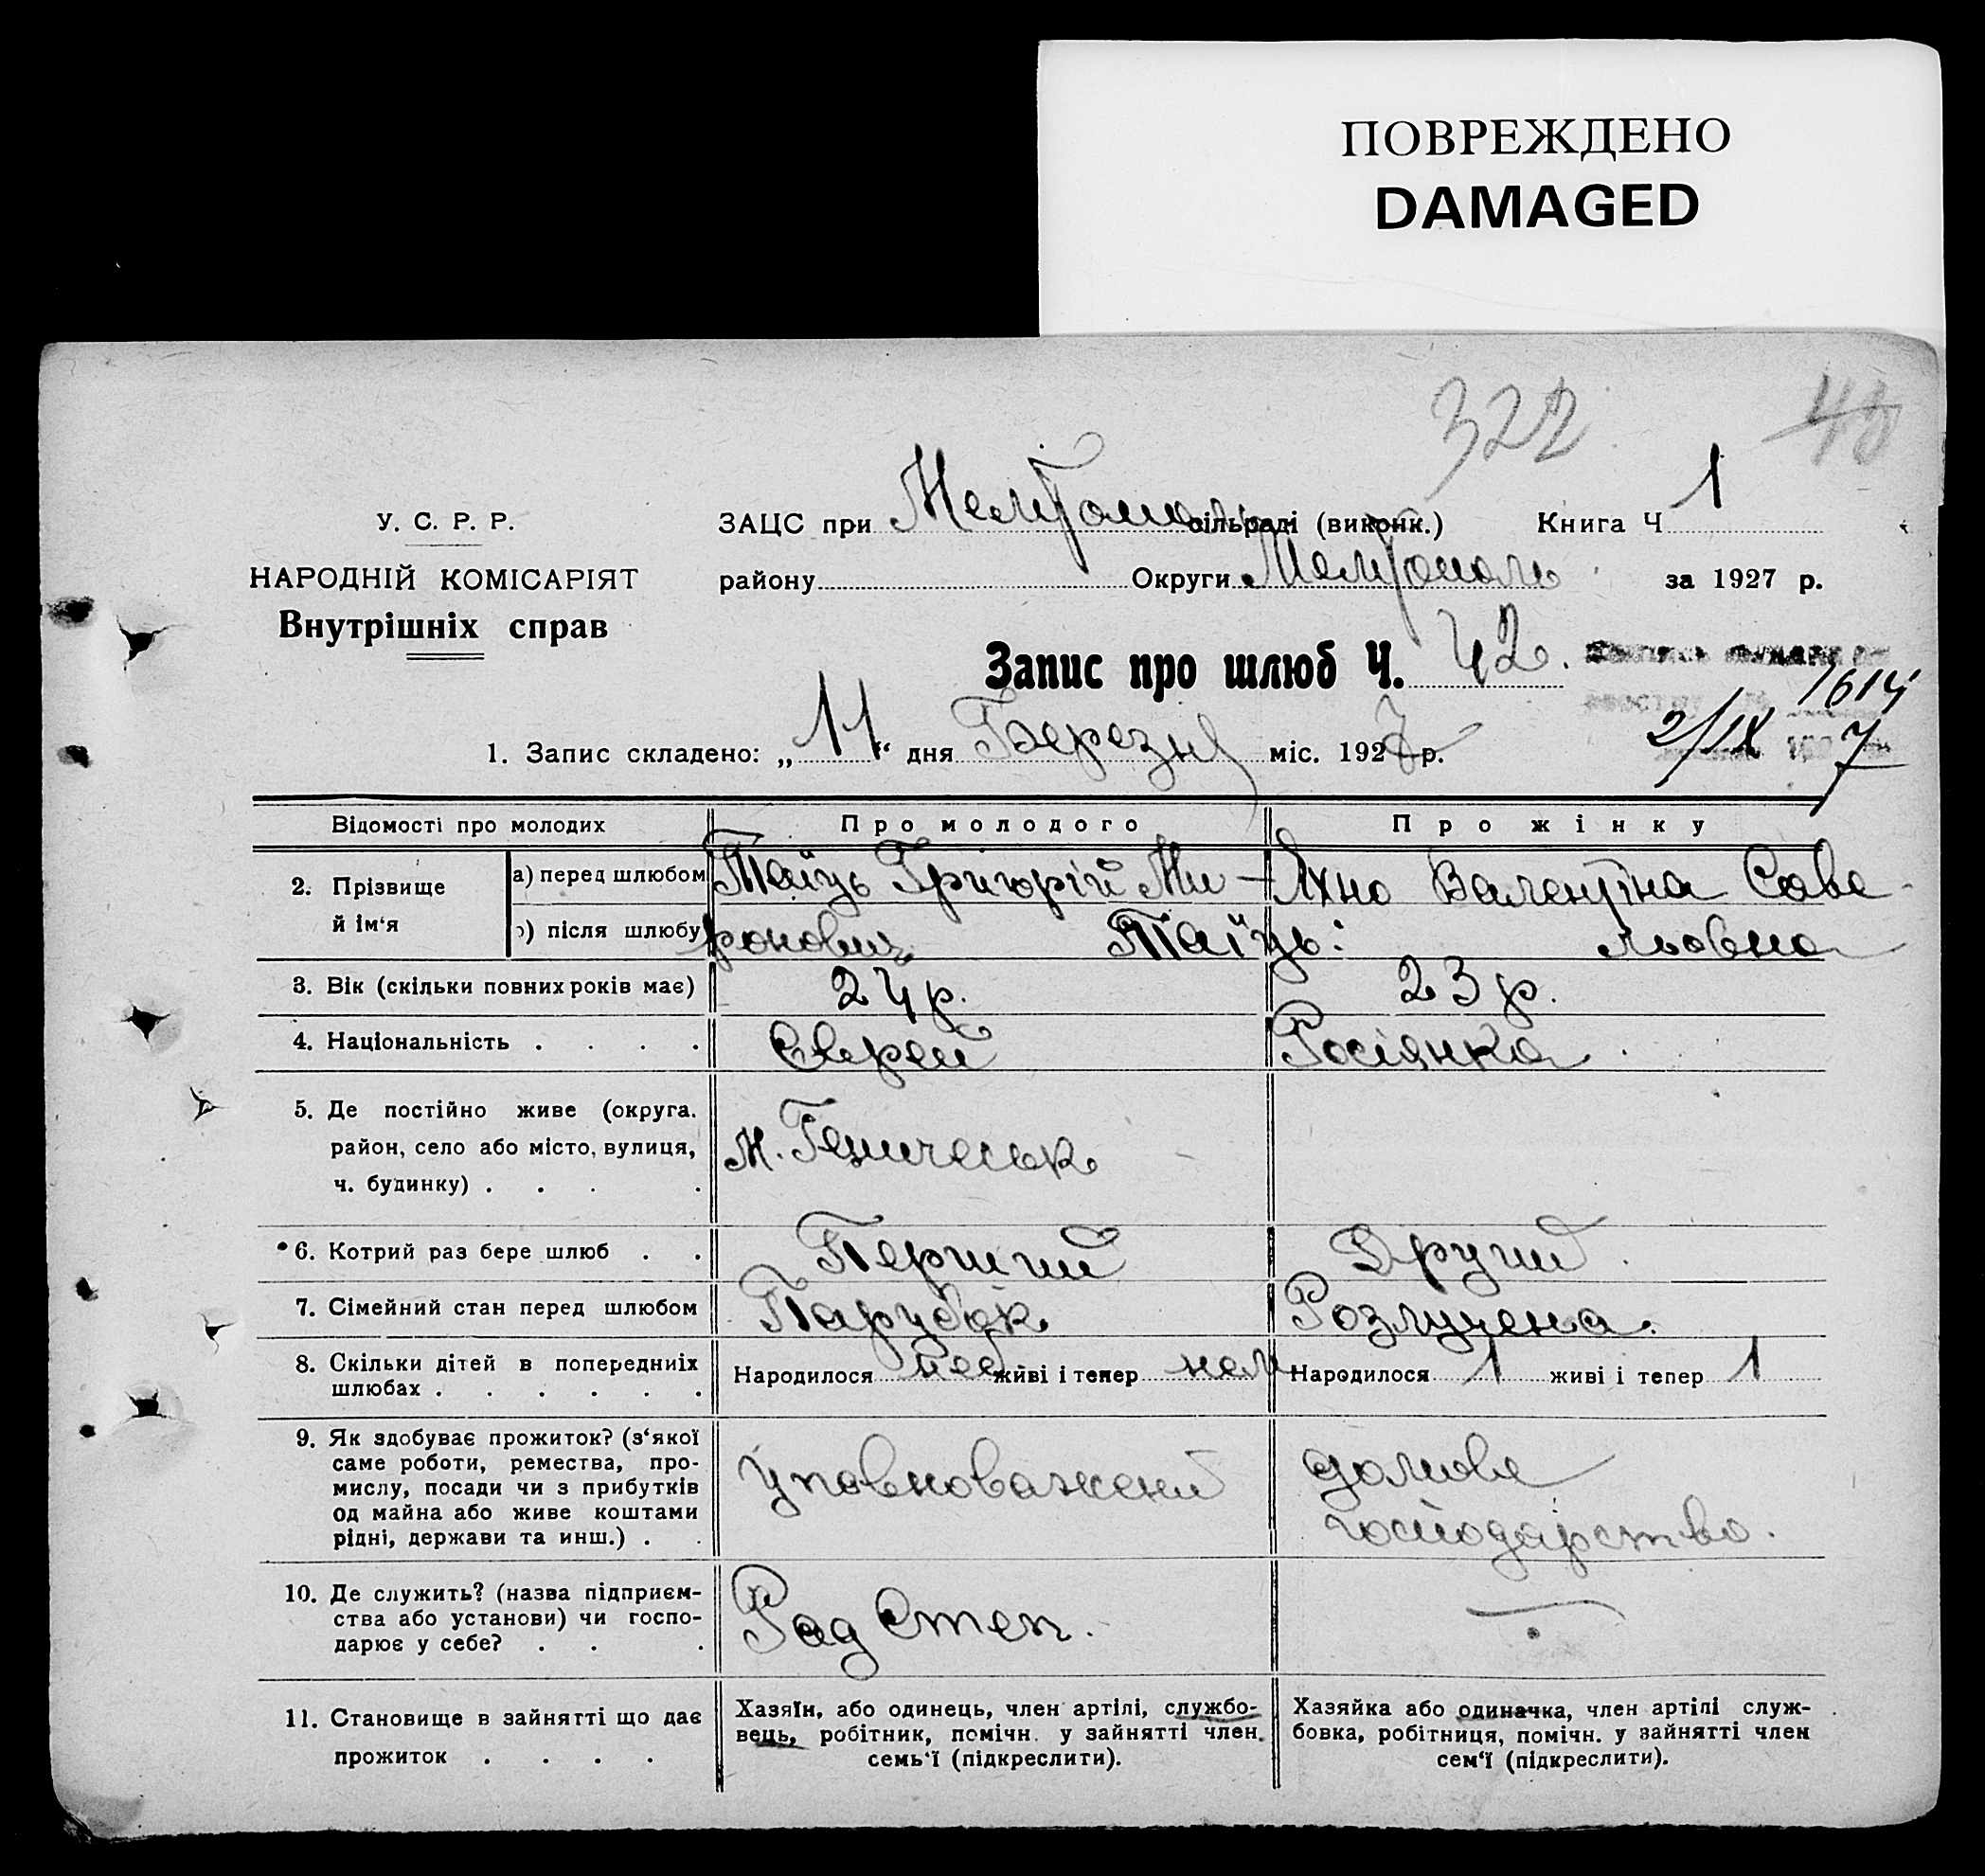 ПОВРЕЖДЕНО
DAMAGED
322 48
У. С. Р. Р.
НАРОДНІЙ КОМІСАРІЯТ
Внутрішніх справ
ЗАЦС при Мелітополь сільраді (виконк.) Книга Ч 1
району Округи Мелітополь за 1927 р.
Запис про шлюб Ч. 42.
1614
1. Запис складено: „11“ дня Березня міс. 1927 р.
2/IX 7
Відомості про молодих Про молодого Про жінку
2. Прізвище й ім‘я
а) перед шлюбом Таїць Григорій Ми- Яхно Валентіна Саве-
) після шлюбу ронович Таїць: льовна
3. Вік (скільки повних років має) 24 р. 23 р.
4. Національність . . . . Єврей Росіянка.
5. Де постійно живе (округа.
район, село або місто, вулиця,
ч. будинку) . . . .
м. Геническ
6. Котрий раз бере шлюб . . Перший Другий.
7. Сімейний стан перед шлюбом Парубок Розлучена.
8. Скільки дітей в попередниіх
шлюбах . . . . . .
Народилося живі і тепер Народилося 1 живі і тепер 1
9. Як здобуває прожиток? (з‘якої
саме роботи, ремества, про-
мислу, посади чи з прибутків
од майна або живе коштами
рідні, держави та инш.) . .
уповноважений
домове
господарство.
10. Де служить? (назва підприєм-
ства або установи) чи госпо-
дарює у себе? . . .
Рад Степ.
11. Становище в зайнятті що дає
прожиток . . . .
Хазяїн, або одинець, член артілі, службо-
вець, робітник, помічн. у зайнятті член.
семь‘ї (підкреслити).
Хазяйка або одиначка, член артілі служ-
бовка, робітниця, помічн. у зайнятті член
сем‘ї (підкреслити).